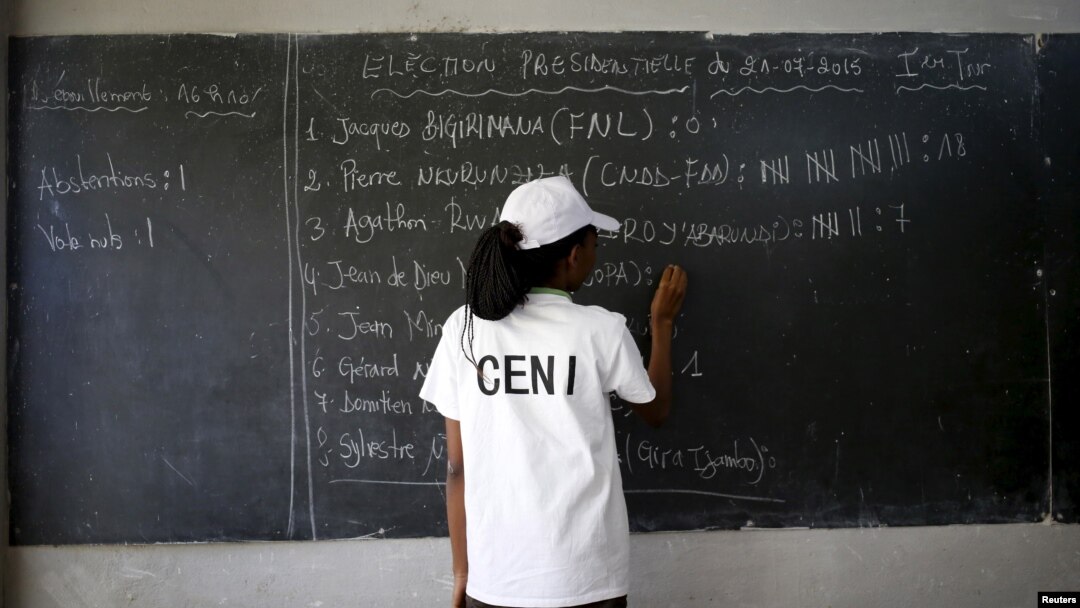 ELECTION PRESIDENTIELLE du 21-07-2015 1er Tour
Dépouillement : 16h10'
Abstentions : 1
Vote nuls : 1
1. Jacques BIGIRIMANA (FNL) : 0
2. Pierre NKURUNZIZA (CNDD-FDD) : : 18
3. Agathon RWA ERO Y'ABARUNDI) : : 7
4. Jean de Dieu OPA) :
5. Jean Min
6. Gérard N 1
7. Domitien
8. Sylvestre N (Gira Ijambo) :
CENI
Reuters